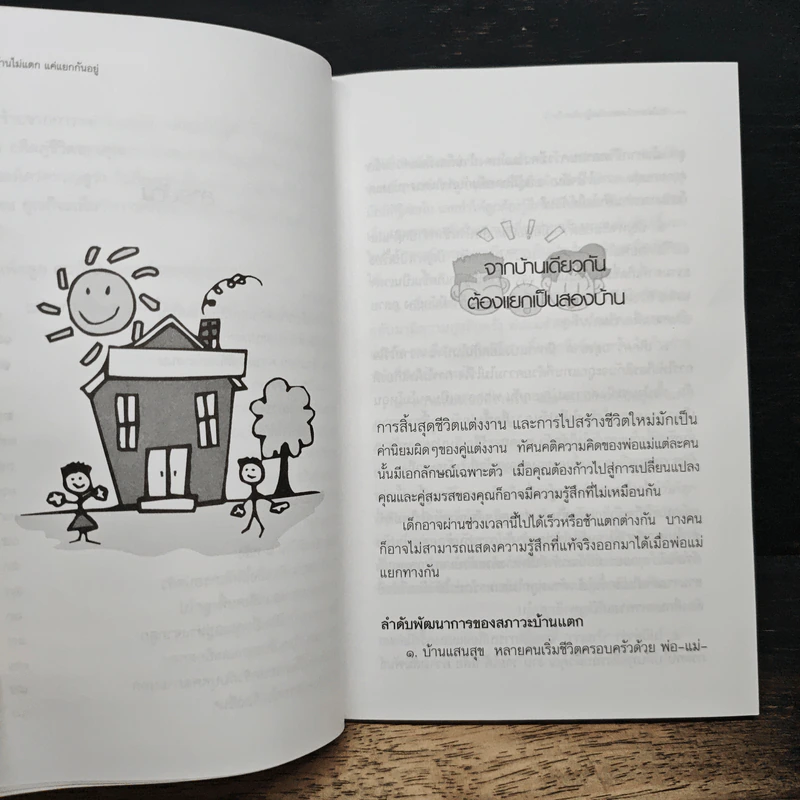 านไม่แตก แค่แยกกันอยู่
จากบ้านเดียวกัน
ต้องแยกเป็นสองบ้าน
การสิ้นสุดชีวิตแต่งงาน และการไปสร้างชีวิตใหม่มักเป็น
ค่านิยมผิดๆของคู่แต่งงาน ทัศนคติความคิดของพ่อแม่แต่ละคน
นั้นมีเอกลักษณ์เฉพาะตัว เมื่อคุณต้องก้าวไปสู่การเปลี่ยนแปลง
คุณและคู่สมรสของคุณก็อาจมีความรู้สึกที่ไม่เหมือนกัน
เด็กอาจผ่านช่วงเวลานี้ไปได้เร็วหรือช้าแตกต่างกัน บางคน
ก็อาจไม่สามารถแสดงความรู้สึกที่แท้จริงออกมาได้เมื่อพ่อแม่
แยกทางกัน
ลำดับพัฒนาการของสภาวะบ้านแตก
๑. บ้านแสนสุข หลายคนเริ่มชีวิตครอบครัวด้วย พ่อ-แม่-